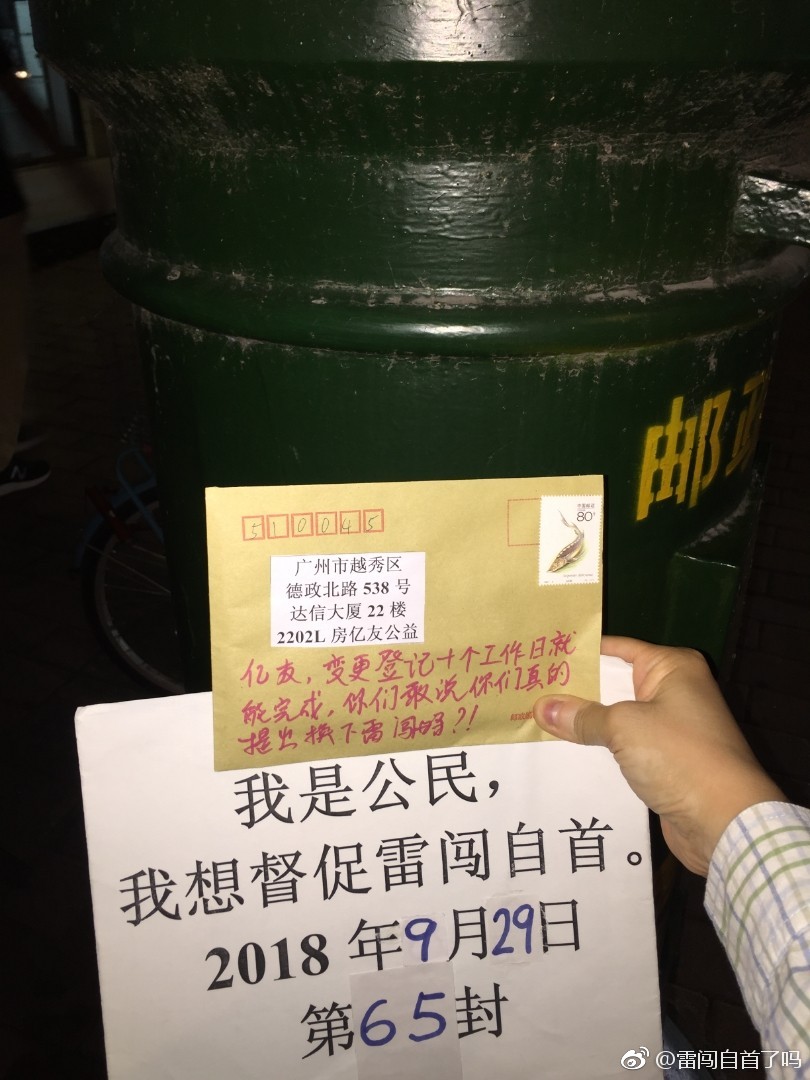 邮政
510045
80分
广州市越秀区
德政北路 538 号
达信大厦 22 楼
2202L 房亿友公益
亿友，变更登记十个工作日就
能完成，你们敢说你们真的
提出换下雷闯吗？！
我是公民，
我想督促雷闯自首。
2018 年9月29日
第65封
@雷闯自首了吗